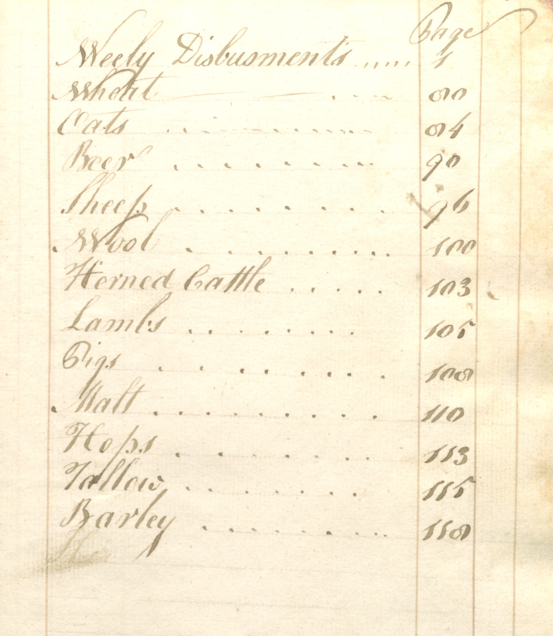 Page
Weely Disbusments ..... 1
Wheat ... 80
Oats ......... 84
Beer ........ 90
Sheep ........ 96
Wool ......... 100
Horned Cattle ..... 103
Lambs ....... 105
Pigs ....... 108
Malt ......... 110
Hops ........ 113
Tallow ....... 115
Barley ......... 118